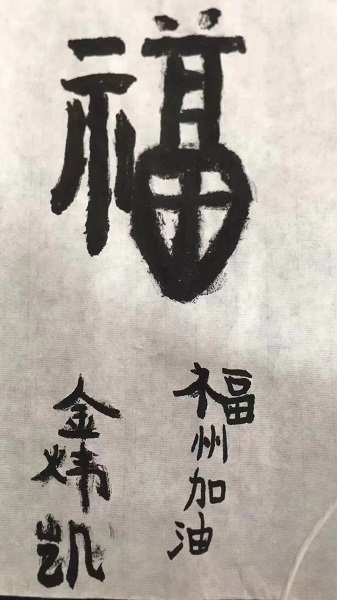 福
福州加油
金炜凯